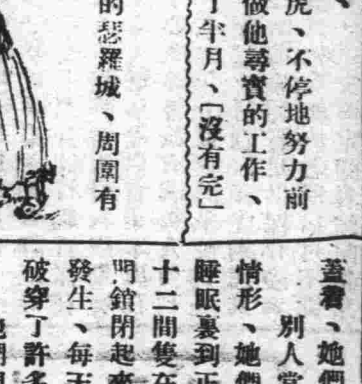 虎、不停地努力前
做他尋寶的工作、
了半月、﹝沒有完﹞
的瑟羅城、周圍有
蓋着、她們
別人當
情形、她們
睡眠裏到正
十二間隻在
門鎖閉起來
發生、每天
破穿了許多